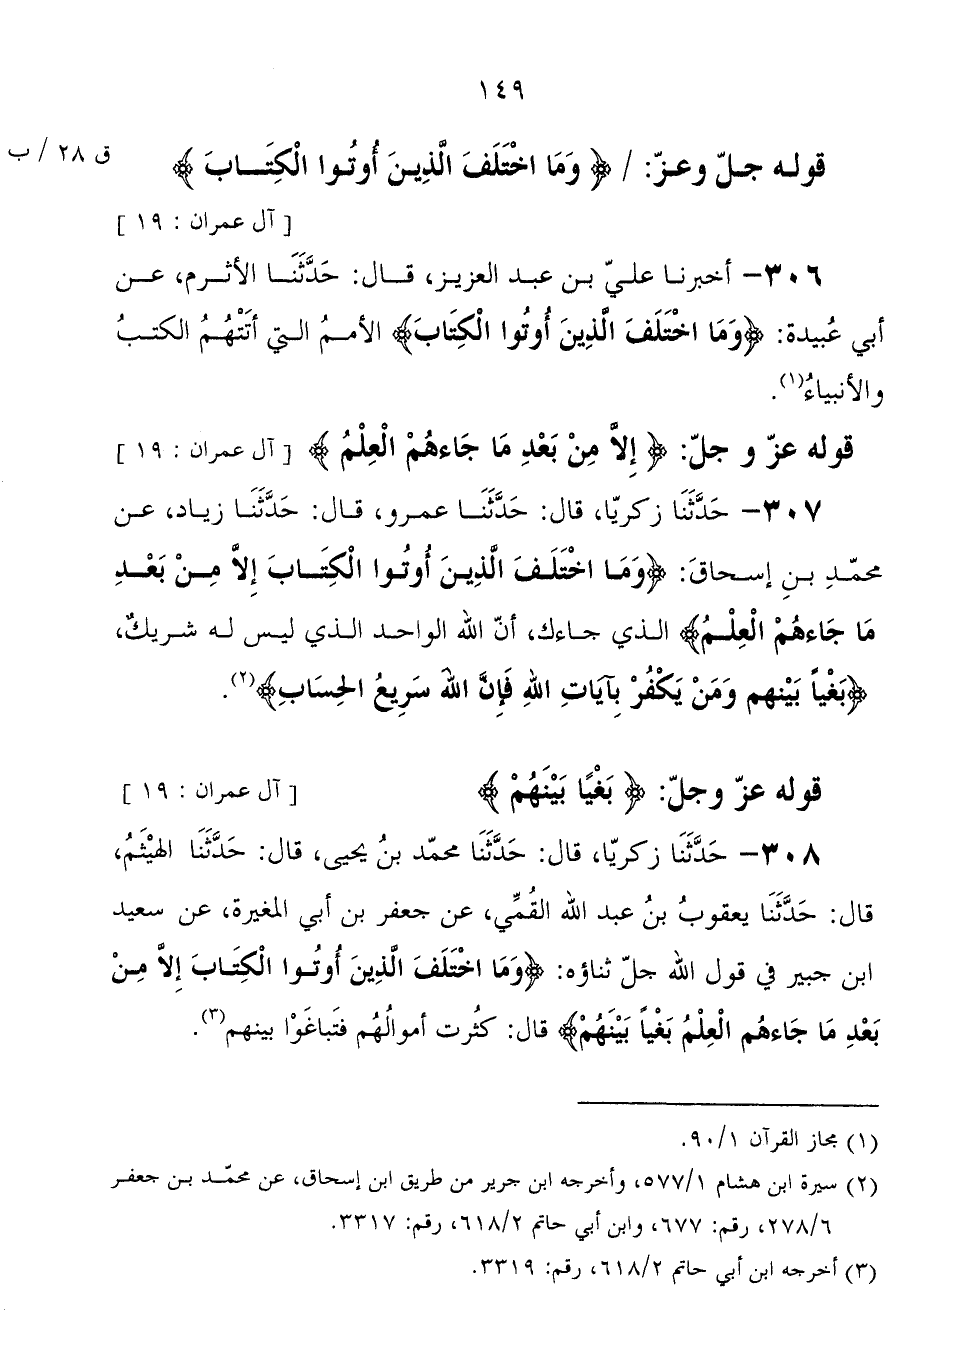 ١٤٩
قوله جلّ وعزّ: / ﴿ وَمَا اخْتَلَفَ الَّذِينَ أُوتُوا الْكِتَابَ ﴾
ق ٢٨ / ب
[ آل عمران : ١٩ ]
٣٠٦– أخبرنا عليّ بن عبد العزيز، قال: حَدَّثَنَا الأثرم، عن
أبي عُبيدة: ﴿وَمَا اخْتَلَفَ الَّذِينَ أُوتُوا الْكِتَابَ﴾ الأممُ التي أتَتْهُمُ الكتبُ
والأنبياءُ(١).
قوله عزّ و جلّ: ﴿ إِلاَّ مِنْ بَعْدِ مَا جَاءهُمْ الْعِلْمُ ﴾ [ آل عمران : ١٩ ]
٣٠٧– حَدَّثَنَا زكريّا، قال: حَدَّثَنَا عمرو، قال: حَدَّثَنَا زياد، عن
محمّدِ بنِ إسحاقَ: ﴿وَمَا اخْتَلَفَ الَّذِينَ أُوتُوا الْكِتَابَ إِلاَّ مِنْ بَعْدِ
مَا جَاءهُمْ الْعِلْمُ﴾ الذي جاءك، أنّ الله الواحد الذي ليس له شريكٌ،
﴿بَغْياً بَيْنهم وَمَنْ يَكْفُرْ بِآيَاتِ اللهِ فَإِنَّ اللهَ سَرِيعُ الحِسَابِ﴾(٢).
قوله عزّ وجلّ: ﴿ بَغْيًا بَيْنَهُمْ ﴾ [ آل عمران : ١٩ ]
٣٠٨– حَدَّثَنَا زكريّا، قال: حَدَّثَنَا محمّد بنُ يحيى، قال: حَدَّثَنَا الهيْثَمُ،
قال: حَدَّثَنَا يعقوبُ بنُ عبد الله القُمِّي، عن جعفر بن أبي المغيرة، عن سعيد
ابن جبير في قول الله جلّ ثناؤه: ﴿وَمَا اخْتَلَفَ الَّذِينَ أُوتُوا الْكِتَابَ إِلاَّ مِنْ
بَعْدِ مَا جَاءهُم الْعِلْمُ بَغْياً بَيْنَهُمْ﴾ قال: كثُرت أموالُهُم فتَباغَوْا بينهم(٣).
(١) مجاز القرآن ٩٠/١.
(٢) سيرة ابن هشام ٥٧٧/١، وأخرجه ابن جرير من طريق ابن إسحاق، عن محمّد بن جعفر
٢٧٨/٦، رقم: ٦٧٧، وابن أبي حاتم ٦١٨/٢، رقم: ٣٣١٧.
(٣) أخرجه ابن أبي حاتم ٦١٨/٢، رقم: ٣٣١٩.